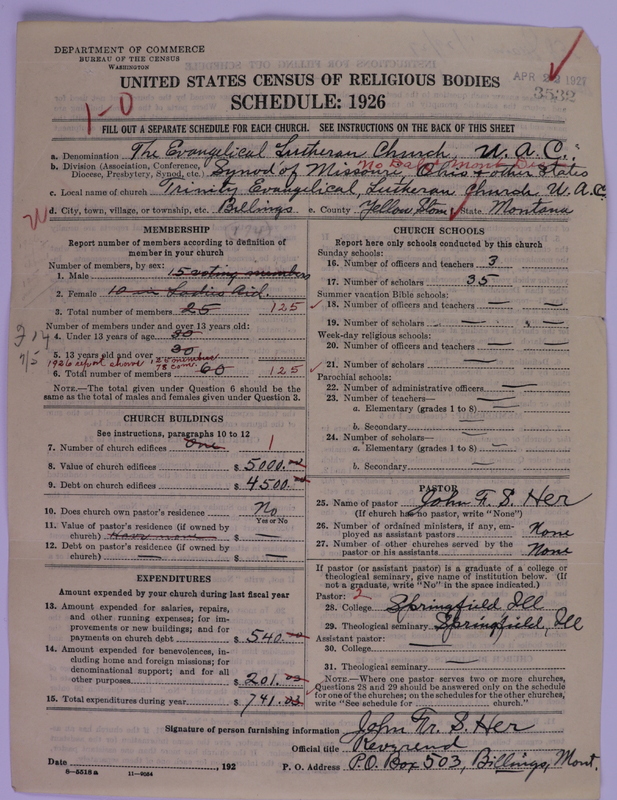 DEPARTMENT OF COMMERCE
BUREAU OF THE CENSUS
WASHINGTON
APR 1927
3532
UNITED STATES CENSUS OF RELIGIOUS BODIES
SCHEDULE: 1926
1-0
FILL OUT A SEPARATE SCHEDULE FOR EACH CHURCH. SEE INSTRUCTIONS ON THE BACK OF THIS SHEET
a. Denomination The Evangelical Lutheran Church U. A. C.
b. Division (Association, Conference, Diocese, Presbytery, Synod, etc.) Synod of Missouri, Ohio & other States
c. Local name of church Trinity Evangelical, Lutheran Church U. A. C.
d. City, town, village, or township, etc. Billings e. County Yellow Stone State Montana
MEMBERSHIP
Report number of members according to definition of
member in your church
Number of members, by sex:
1. Male 15 voting members
2. Female 10 in Ladies Aid.
3. Total number of members 25 125
Number of members under and over 13 years old:
4. Under 13 years of age 30
5. 13 years old and over 30
1926 report shows 125 members
78 com.
6. Total number of members 60 125
NOTE.—The total given under Question 6 should be
the same as the total of males and females given under Question 3.
CHURCH BUILDINGS
See instructions, paragraphs 10 to 12
7. Number of church edifices One 1
8. Value of church edifices $ 5000.00
9. Debt on church edifices $ 4500.00
10. Does church own pastor's residence No
Yes or No
11. Value of pastor's residence (if owned by
church) Have none $ —
12. Debt on pastor's residence (if owned by
church) — $ —
EXPENDITURES
Amount expended by your church during last fiscal year
13. Amount expended for salaries, repairs,
and other running expenses; for im-
provements or new buildings; and for
payments on church debt $ 540.00
14. Amount expended for benevolences, in-
cluding home and foreign missions; for
denominational support; and for all
other purposes $ 201.00
15. Total expenditures during year $ 741.00
CHURCH SCHOOLS
Report here only schools conducted by this church
Sunday schools:
16. Number of officers and teachers 3
17. Number of scholars 35
Summer vacation Bible schools:
18. Number of officers and teachers — —
19. Number of scholars — —
Week-day religious schools:
20. Number of officers and teachers — —
21. Number of scholars —
Parochial schools:
22. Number of administrative officers —
23. Number of teachers—
a. Elementary (grades 1 to 8) —
b. Secondary —
24. Number of scholars—
a. Elementary (grades 1 to 8) —
b. Secondary —
PASTOR
25. Name of pastor John F. S. Her
(If church has no pastor, write "None")
26. Number of ordained ministers, if any, em-
ployed as assistant pastors None
27. Number of other churches served by the
pastor or his assistants None
If pastor (or assistant pastor) is a graduate of a college or
theological seminary, give name of institution below. (If
not a graduate, write "No" in the space indicated.)
Pastor: 2
28. College Springfield Ill
29. Theological seminary Springfield, Ill
Assistant pastor:
30. College —
31. Theological seminary —
NOTE.—Where one pastor serves two or more churches,
Questions 28 and 29 should be answered only on the schedule
for one of the churches; on the schedules for the other churches,
write "See schedule for church."
Signature of person furnishing information John Fr. S. Her
Official title Reverend
Date , 192 P. O. Address P.O. Box 503, Billings, Mont.
8—5518a 11—9564